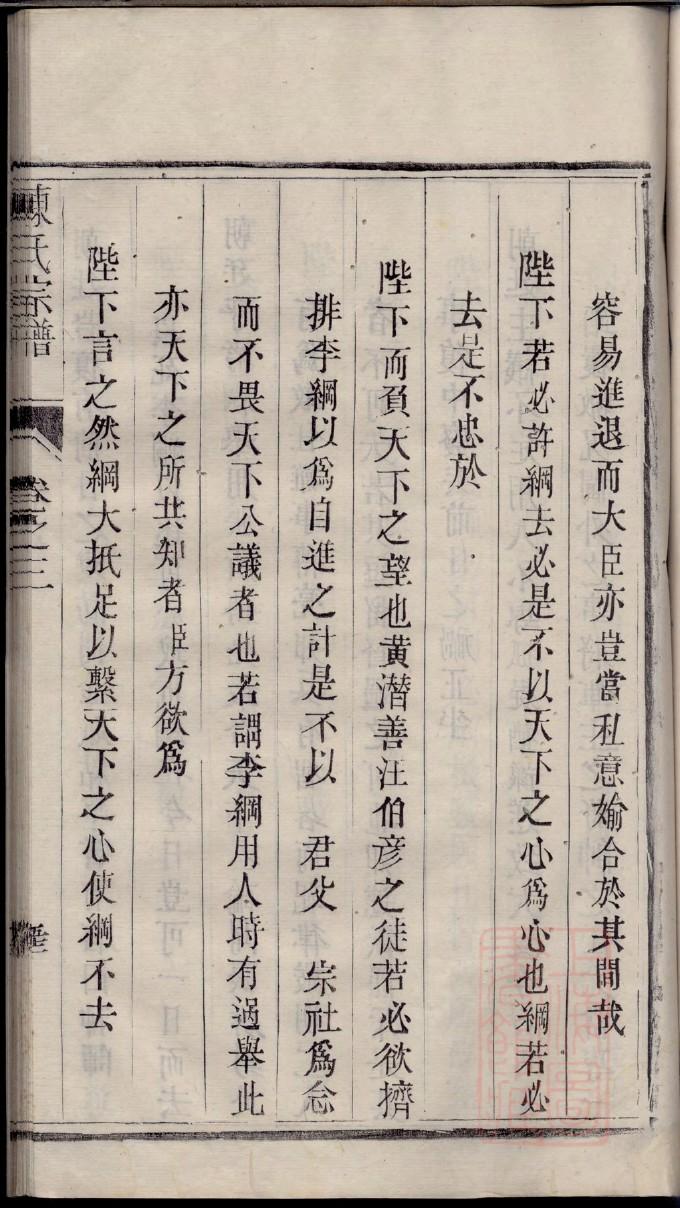 容易進退而大臣亦豈當私意媮合於其間哉
陛下若必許綱去必是不以天下之心爲心也綱若必
去是不忠於
陛下而負天下之望也黄潛善汪伯彦之徒若必欲擠
排李綱以爲自進之計是不以 君父 宗社爲念
而不畏天下公議者也若謂李綱用人時有過舉此
亦天下之所共知者臣方欲爲
陛下言之然綱大抵足以繫天下之心使綱不去
陳氏宗譜 卷之三